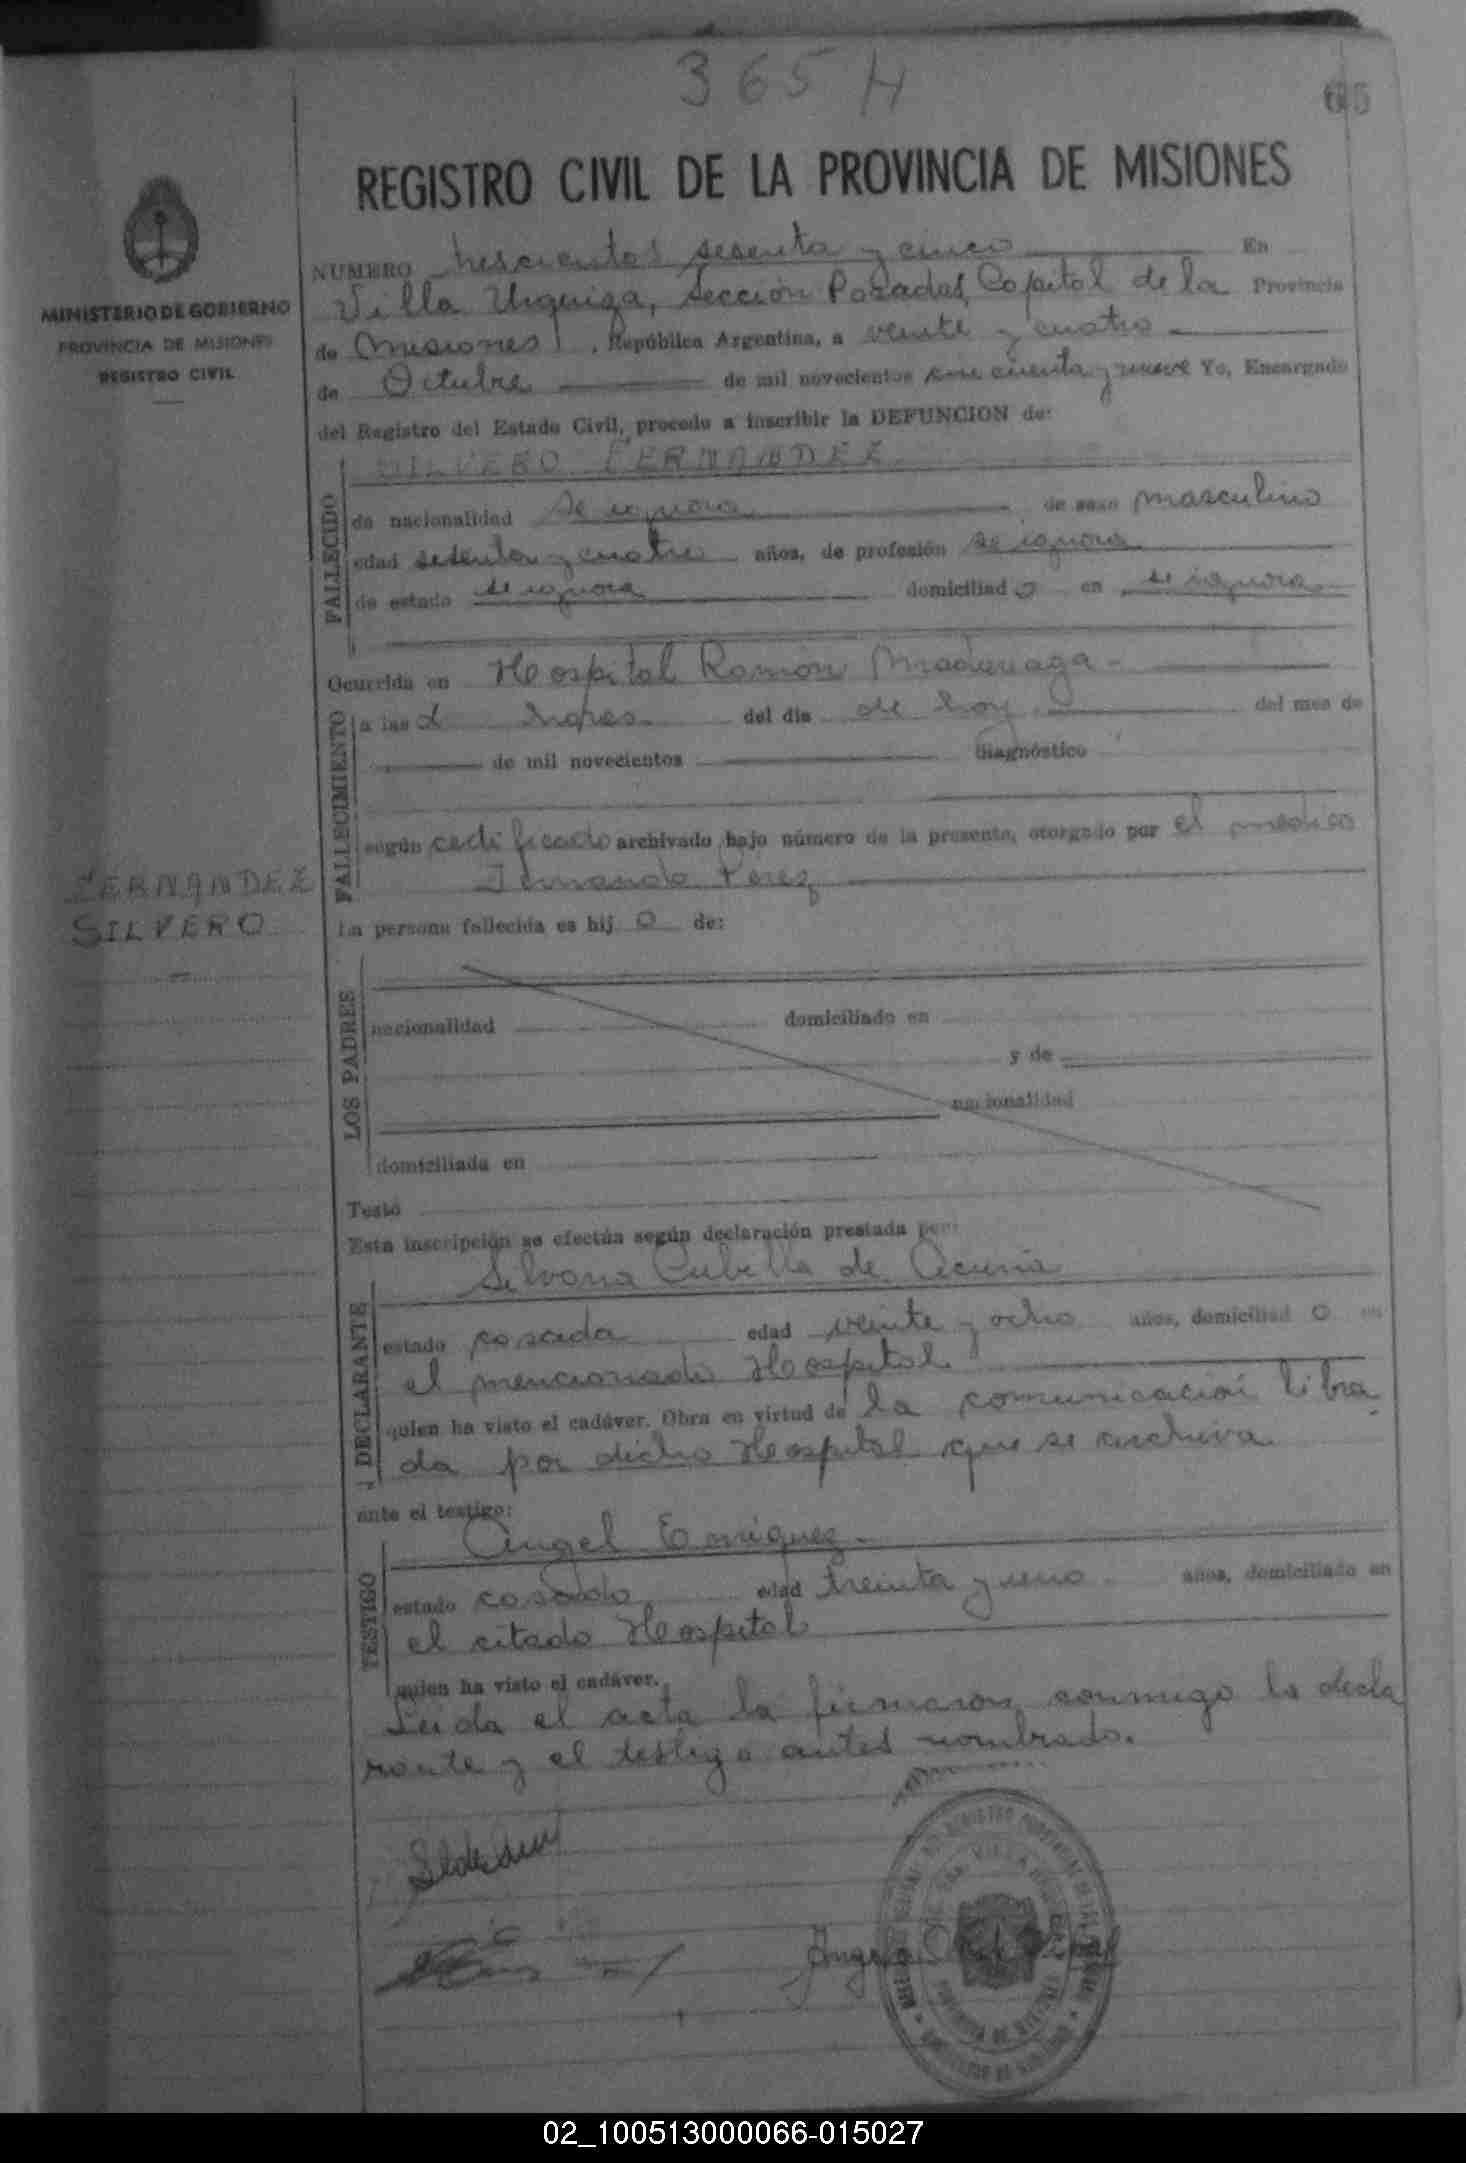 365 H
65
REGISTRO CIVIL DE LA PROVINCIA DE MISIONES
MINISTERIO DE GOBIERNO
PROVINCIA DE MISIONES
REGISTRO CIVIL
NUMERO trescientos sesenta y cinco En
Villa Urquiza, Sección Posadas, Capital de la Provincia
de Misiones, República Argentina, a veinte y cuatro
de Octubre de mil novecientos cincuenta y nueve Yo, Encargado
del Registro del Estado Civil, procedo a inscribir la DEFUNCION de:
FALLECIDO
SILVERO FERNANDEZ
de nacionalidad se ignora de sexo masculino
edad setenta y cuatro años, de profesión se ignora
de estado se ignora domiciliad o en se ignora
Ocurrida en Hospital Ramón Madariaga
FALLECIMIENTO
a las horas del dia de hoy del mes de
de mil novecientos diagnóstico
según certificado archivado bajo número de la presente, otorgado por el médico
Fernando Perez
FERNANDEZ
SILVERO
La persona fallecida es hij o de:
LOS PADRES
nacionalidad domiciliado en
y de
nacionalidad
domiciliada en
Testó
Esta inscripción se efectúa según declaración prestada por:
DECLARANTE
Silvana Cubilla de Acuña
estado casada edad veinte y ocho años, domiciliad o en
el mencionado Hospital
quien ha visto el cadáver. Obra en virtud de la comunicación libra
da por dicho Hospital que se archiva
ante el testigo:
TESTIGO
Angel Enriquez
estado casado edad treinta y uno años, domiciliado en
el citado Hospital
quien ha visto el cadáver.
Leida el acta la firmaron conmigo la decla
rante y el testigo antes nombrado.
02_100513000066-015027